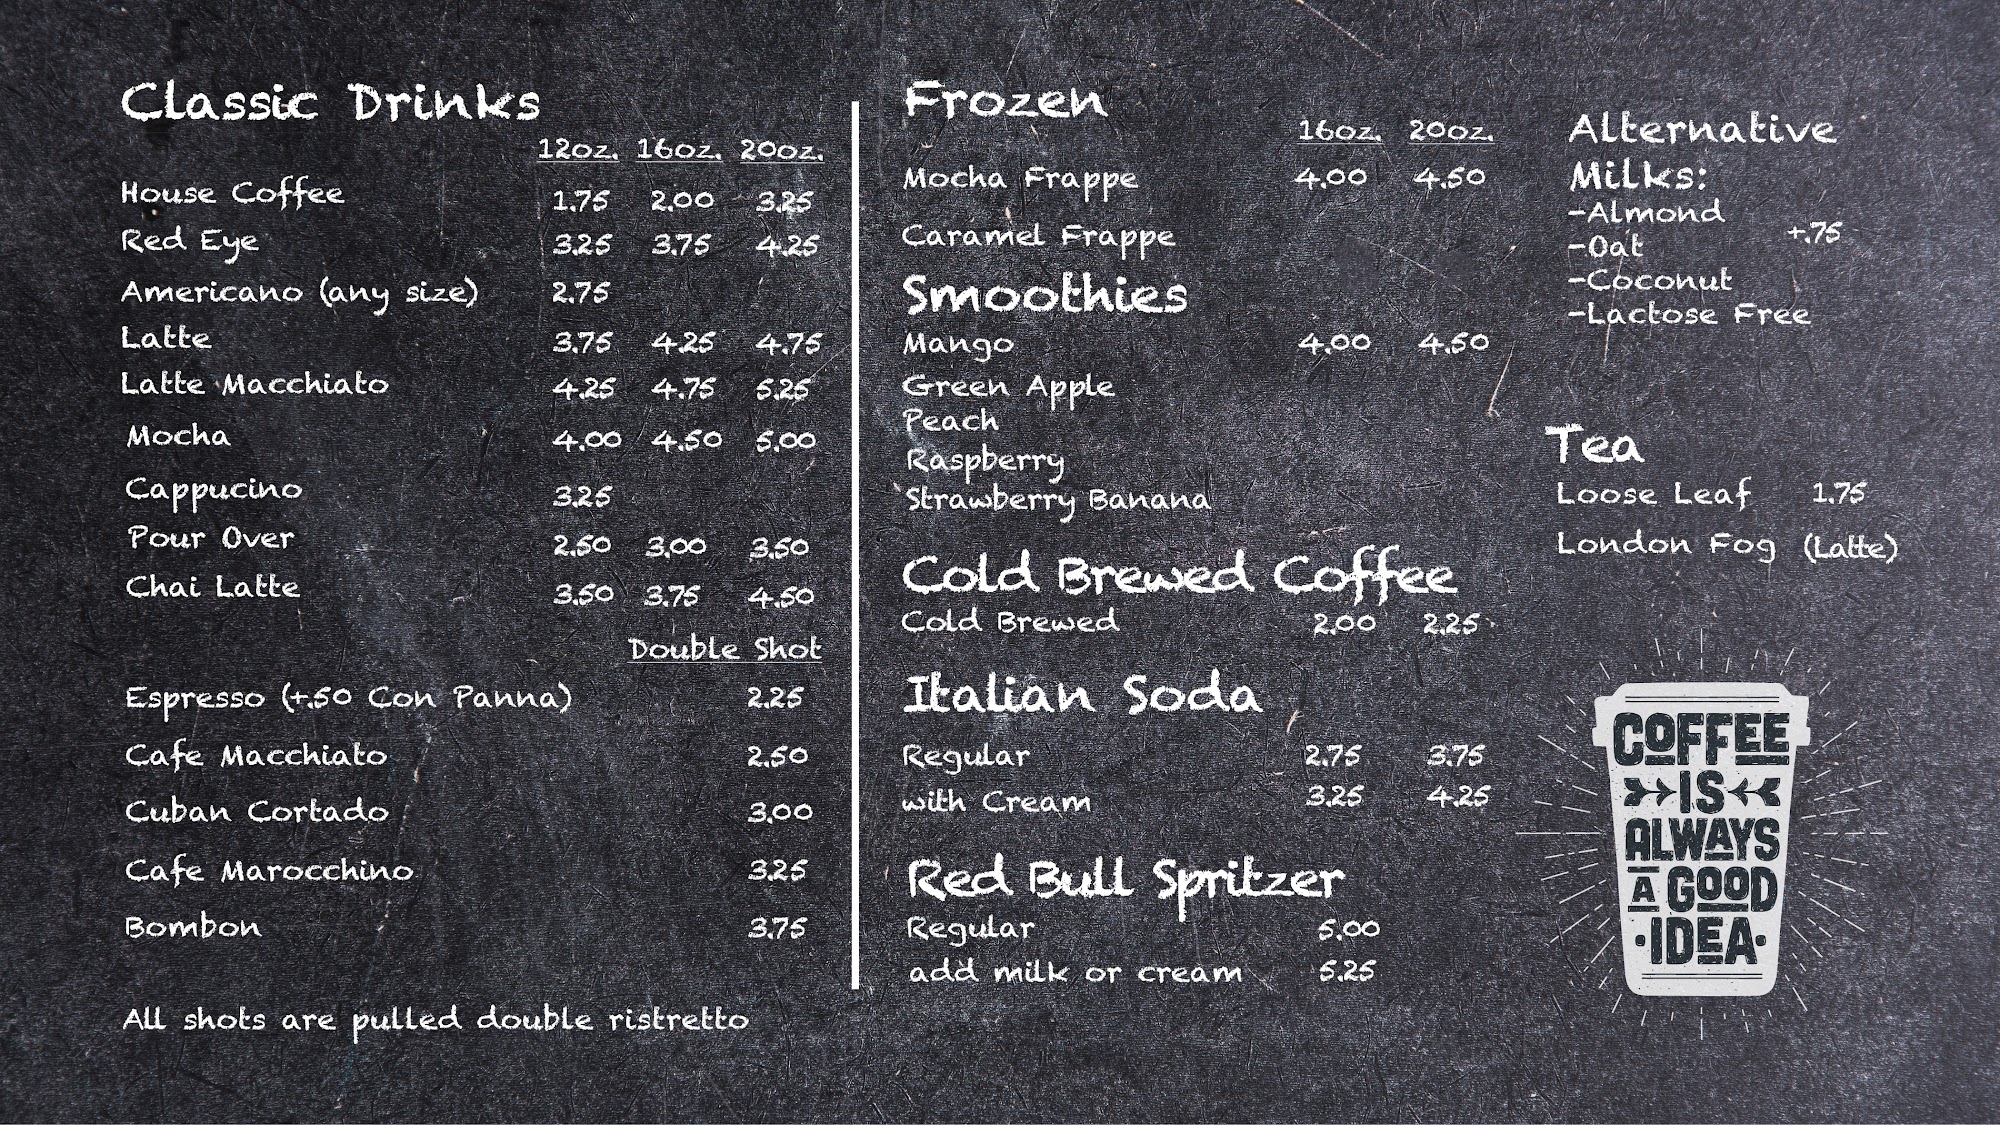 Classic Drinks
12oz. 16oz. 20oz.
House Coffee 1.75 2.00 3.25
Red Eye 3.25 3.75 4.25
Americano (any size) 2.75
Latte 3.75 4.25 4.75
Latte Macchiato 4.25 4.75 5.25
Mocha 4.00 4.50 5.00
Cappucino 3.25
Pour Over 2.50 3.00 3.50
Chai Latte 3.50 3.75 4.50
Double Shot
Espresso (+.50 Con Panna) 2.25
Cafe Macchiato 2.50
Cuban Cortado 3.00
Cafe Marocchino 3.25
Bombon 3.75
All shots are pulled double ristretto
Frozen
16oz. 20oz.
Mocha Frappe 4.00 4.50
Caramel Frappe
Smoothies
Mango 4.00 4.50
Green Apple
Peach
Raspberry
Strawberry Banana
Cold Brewed Coffee
Cold Brewed 2.00 2.25
Italian Soda
Regular 2.75 3.75
with Cream 3.25 4.25
Red Bull Spritzer
Regular 5.00
add milk or cream 5.25
Alternative
Milks:
-Almond
+.75
-Oat
-Coconut
-Lactose Free
Tea
Loose Leaf 1.75
London Fog (Latte)
COFFEE
IS
ALWAYS
A GOOD
·IDEA·